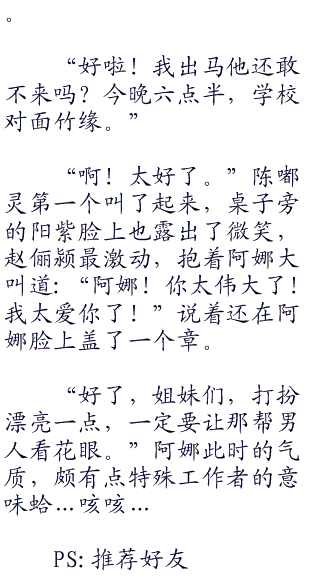 。
“好啦！我出马他还敢
不来吗？今晚六点半，学校
对面竹缘。”
“啊！太好了。”陈嘟
灵第一个叫了起来，桌子旁
的阳紫脸上也露出了微笑，
赵俪颍最激动，抱着阿娜大
叫道:“阿娜！你太伟大了！
我太爱你了！”说着还在阿
娜脸上盖了一个章。
“好了，姐妹们，打扮
漂亮一点，一定要让那帮男
人看花眼。”阿娜此时的气
质，颇有点特殊工作者的意
味蛤…咳咳…
PS:推荐好友